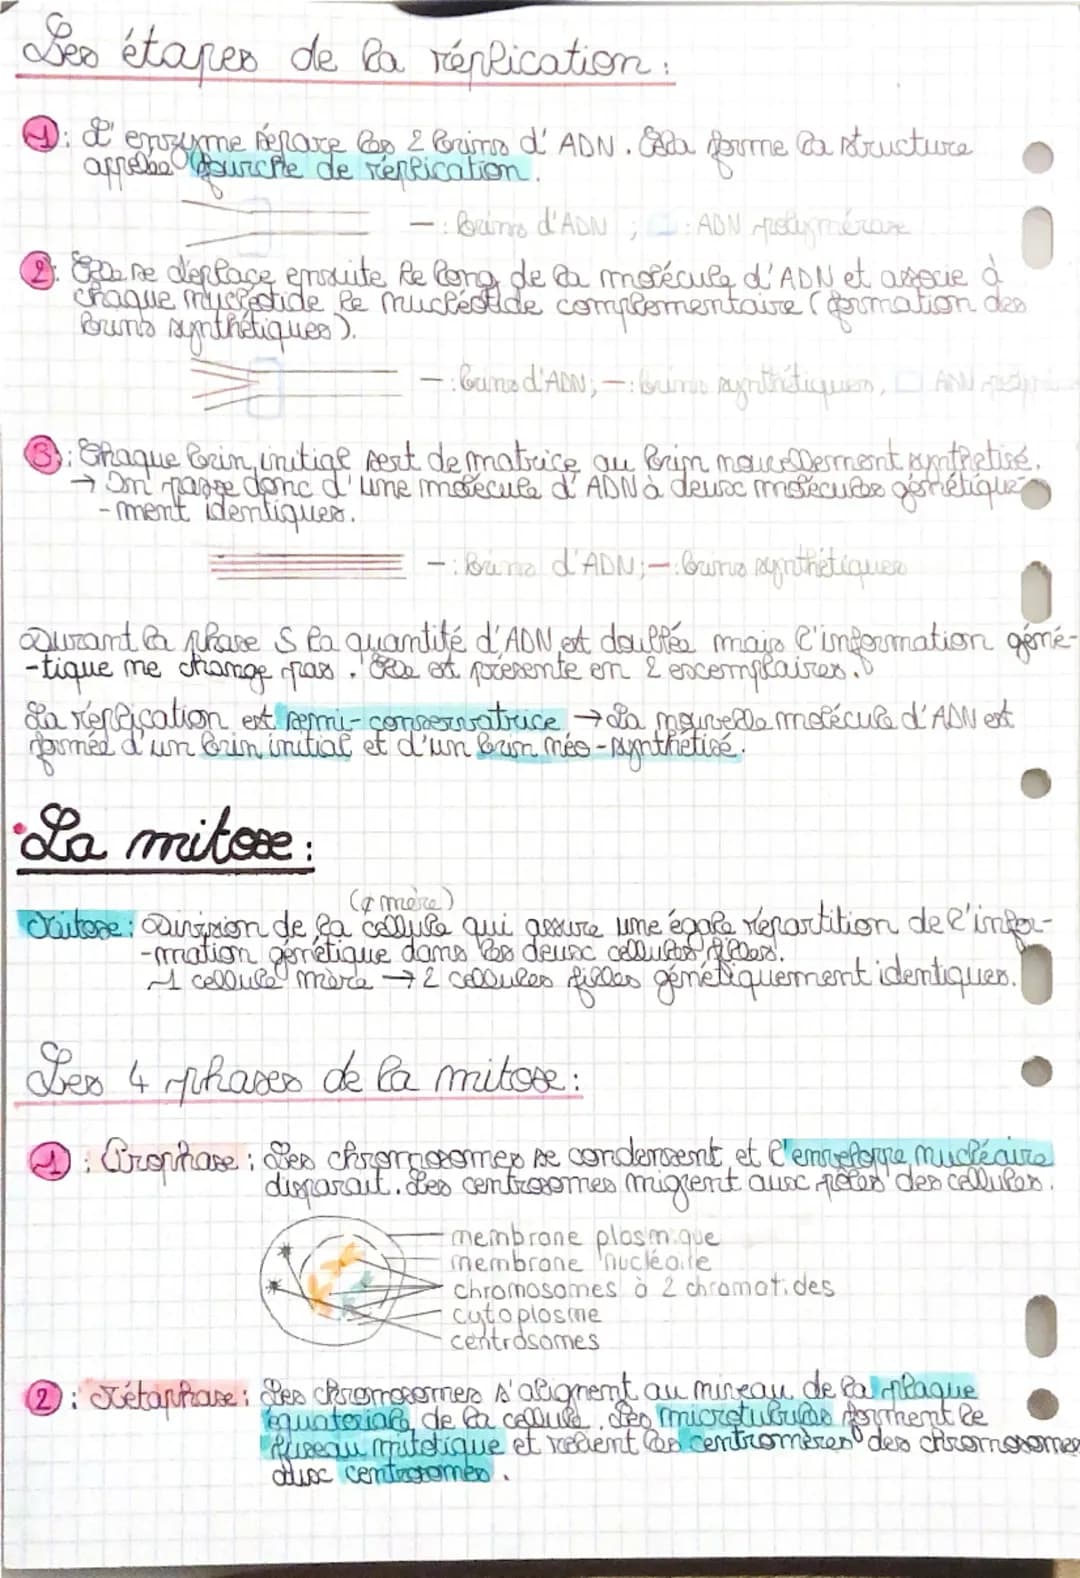 Les étapes de la réplication :
1 : L'enzyme sépare les 2 brins d'ADN. Cela forme la structure
appelée fourche de réplication.
— : brins d'ADN ; : ADN polymérase
2 : Elle se déplace ensuite le long de la molécule d'ADN et associe à
chaque nucléotide le nucléotide complémentaire (formation des
brins synthétiques).
— : brins d'ADN ; — : brins synthétiques, ADN
3 : Chaque brin initial sert de matrice au brin nouvellement synthétisé.
→ On passe donc d'une molécule d'ADN à deux molécules génétique-
-ment identiques.
— : brins d'ADN ; — : brins synthétiques
Durant la phase S la quantité d'ADN est doublée mais l'information géné-
-tique ne change pas. Elle est présente en 2 exemplaires.
La réplication est semi-conservatrice → La nouvelle molécule d'ADN est
formée d'un brin initial et d'un brin néo-synthétisé.
• La mitose :
(¢ mère)
Mitose : Division de la cellule qui assure une égale répartition de l'infor-
-mation génétique dans les deux cellules filles.
1 cellule mère → 2 cellules filles génétiquement identiques.
Les 4 phases de la mitose :
1 : Prophase : Les chromosomes se condensent et l'enveloppe nucléaire
disparait. Les centrosomes migrent aux pôles des cellules.
membrane plasmique
membrane nucléaire
chromosomes à 2 chromatides
cytoplasme
centrosomes
2 : Métaphase : Les chromosomes s'alignent au niveau de la plaque
équatoriale de la cellule. Les microtubules forment le
fuseau mitotique et relient les centromères des chromosomes
aux centrosomes.